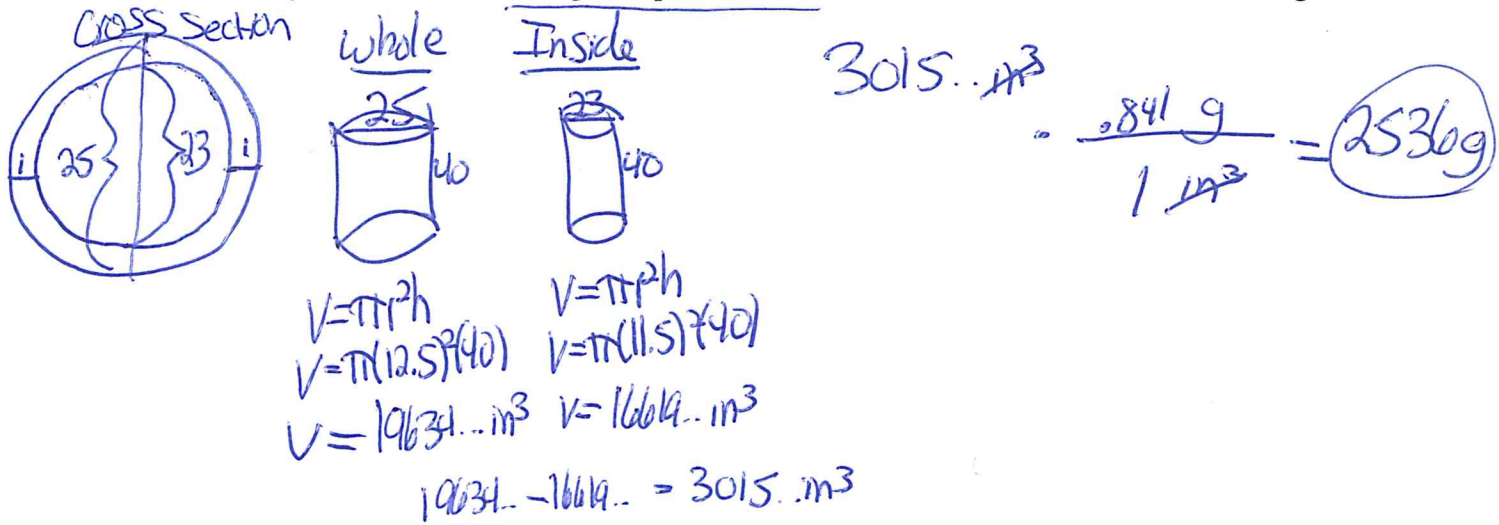 Cross Section
25
23
1
1
Whole
25
40
V=πr²h
V=π(12.5)²(40)
V=19634...in³
Inside
23
40
V=πr²h
V=π(11.5)²(40)
V=16619..in³
19634..-16619..=3015..in³
3015..in³
· .841 g / 1 in³ = 2536g